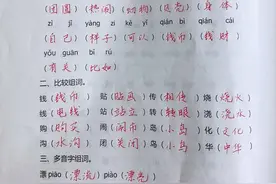 (团圆)(热闹)(购物)(透亮)(身体)
zì jǐ yàng zi kě yǐ qián bì qián cái
(自己)(样子)(可以)(钱币)(钱财)
yǒu guān bǐ rú
(有关)(比如)
二、比较组词。
钱(钱币) 贴(贴画) 传(相传) 烧(烧火)
线(电线) 站(站立) 转(转眼) 浇(浇水)
购(购买) 闹(闹市) 鸟(小鸟) 化(文化)
沟(水沟) 闭(关闭) 乌(小乌) 华(中华)
三、多音字组词。
漂 piāo(漂流) piào(漂亮)